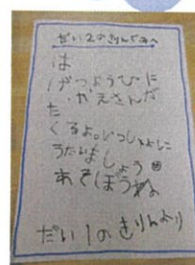 だい2のきりんぐみへ
は
げつようびに
かえさんだ
た
くるよ。いっしょに
うたいましょう
あそぼうね
だい1のきりんより